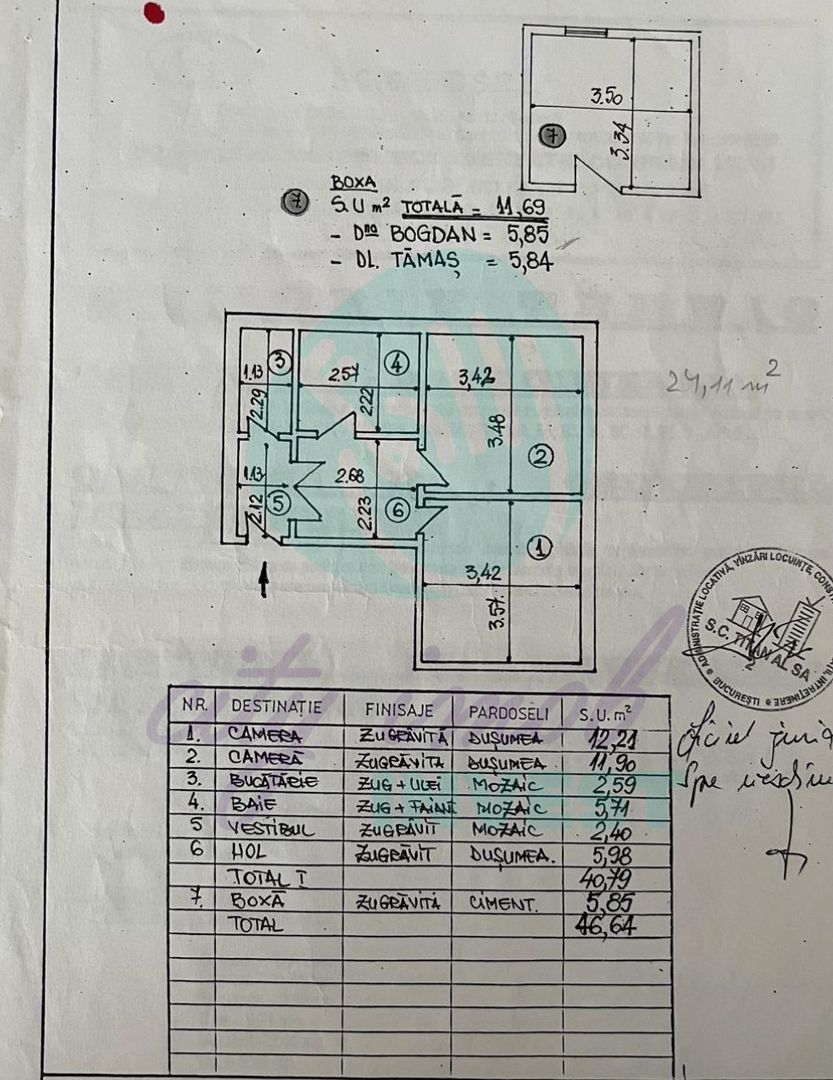 3.50
7
3.34
BOXA
7 S.U m² TOTALĀ = 11,69
- Dna BOGDAN = 5,85
- DL. TĂMAȘ = 5,84
24,11 m²
1.13
3
2.29
2.57
4
2.22
3,42
3.48
2
1.13
2.12
5
2.68
2.23
6
1
3,42
3.57
ADMINISTRAȚIE LOCATIVĂ, VÎNZĂRI LOCUINȚE, CONST
S.C. TITAN AL SA
2
BUCUREȘTI
ÎNTREȚINERE
city imob
NR. DESTINAȚIE FINISAJE PARDOSELI S.U. m²
1. CAMERA ZUGRĂVITĂ DUȘUMEA 12,21
2. CAMERĂ ZUGRĂVITA DUȘUMEA 11,90
3. BUCĂTĂRIE ZUG + ULEI MOZAIC 2,59
4. BAIE ZUG + FAIANȚ MOZAIC 5,71
5 VESTIBUL ZUGRĂVIT MOZAIC 2,40
6 HOL ZUGRĂVIT DUȘUMEA. 5,98
TOTAL I 40,79
7. BOXĂ ZUGRĂVITĂ CIMENT. 5,85
TOTAL 46,64